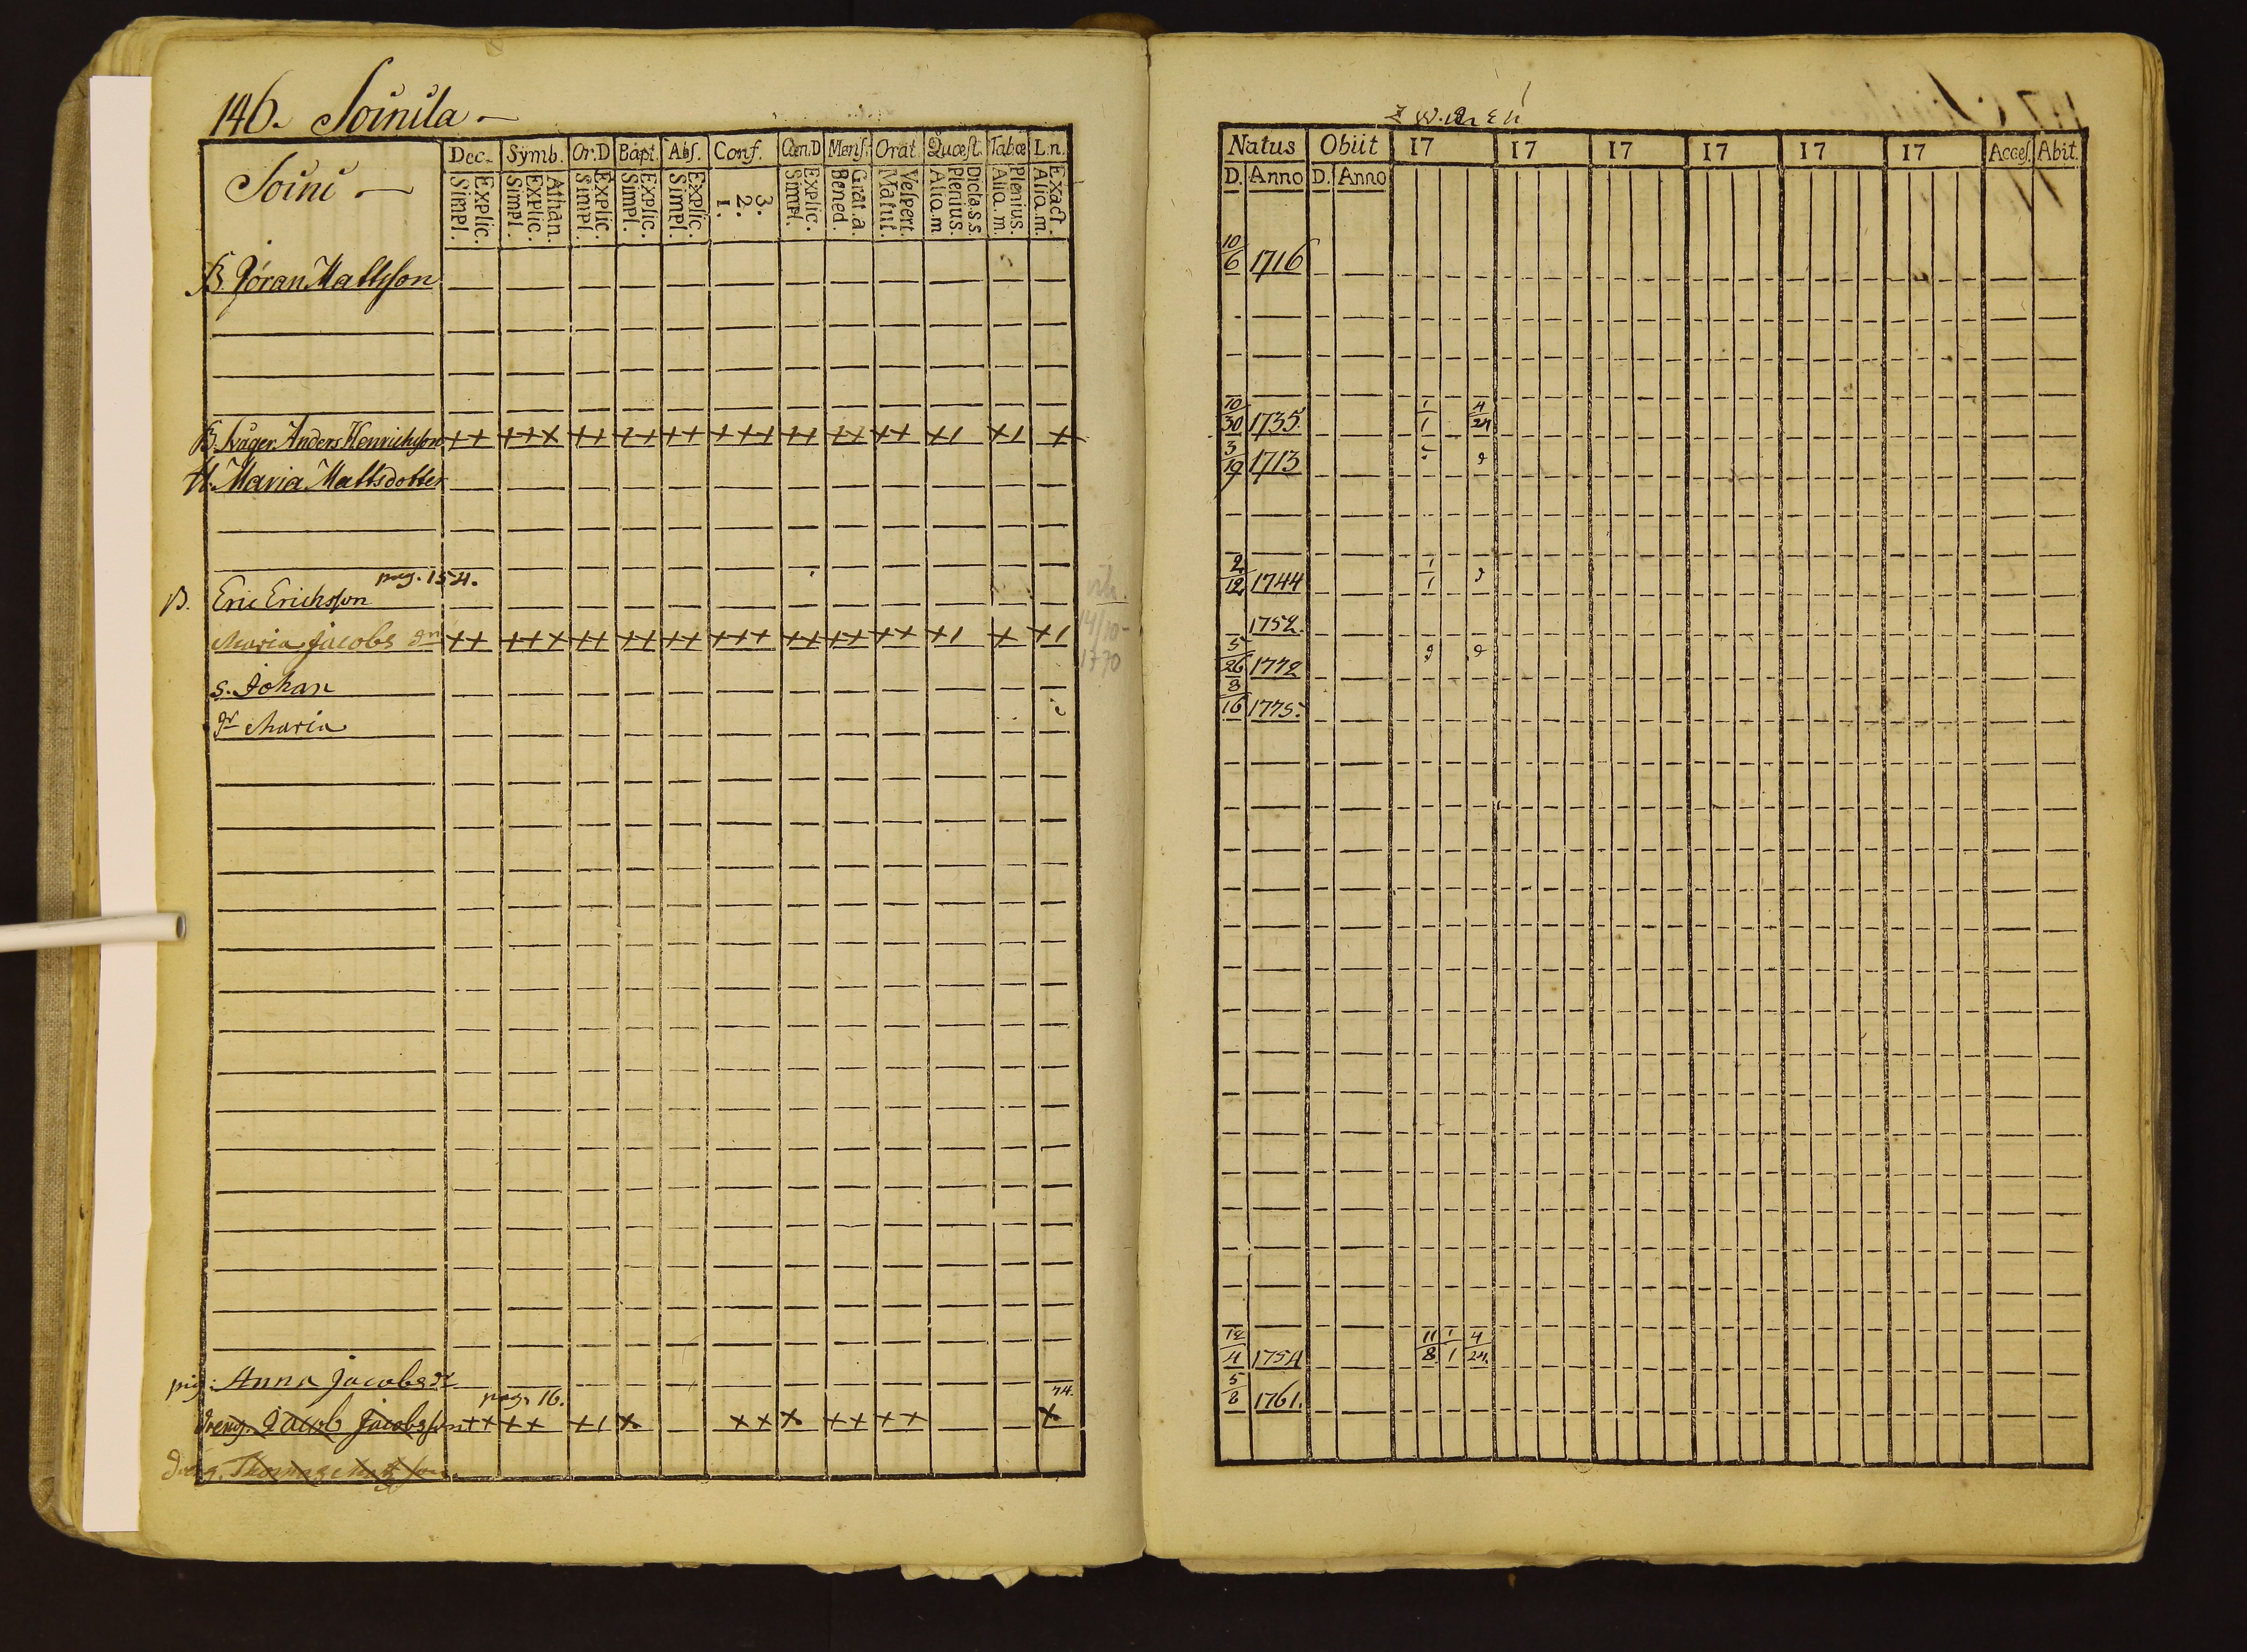 146. Soinila
Soini
Dec. Symb. Or.D Bapt. Abs. Conf. Cœn.D Mens. Orat. Quæst. Tabœ L.n.
Explic. Simpl. Athan. Explic. Simpl. Explic. Simpl. Explic. Simpl. Explic. Simpl. 3. 2. 1. Explic. Simpl. Grat.a. Bened. Vespert. Matut. Dicta.s.s. Plenius. Alia.m. Plenius. Alia.m. Exact. Alia.m.
B. Jöran Mattsson
B. Svåger Anders Henrichsson ++ +++ ++ ++ ++ +++ ++ ++ ++ +1 +1 +
H. Maria Mattsdotter
pag. 154.
B. Eric Erichsson
Maria Jacobs dr ++ +++ ++ ++ ++ +++ ++ ++ ++ +1 + +1
14/10
1770
s. Johan
dr Maria
pig. Anna Jacobsdr
pag. 16. 74.
dreng. Jacob Jacobsson ++ ++ +1 + ++ + ++ ++ +
dreng. Thomas
Natus Obiit 17 17 17 17 17 17 Acces. Abit.
D. Anno D. Anno
10/6 1716
10/30 1735 1/1 4/24
3/19 1713
2/12 1744 1/1
1752.
5/26 1772
8/16 1775.
12/4 1754 11/8 1/1 4/24
5/8 1761.